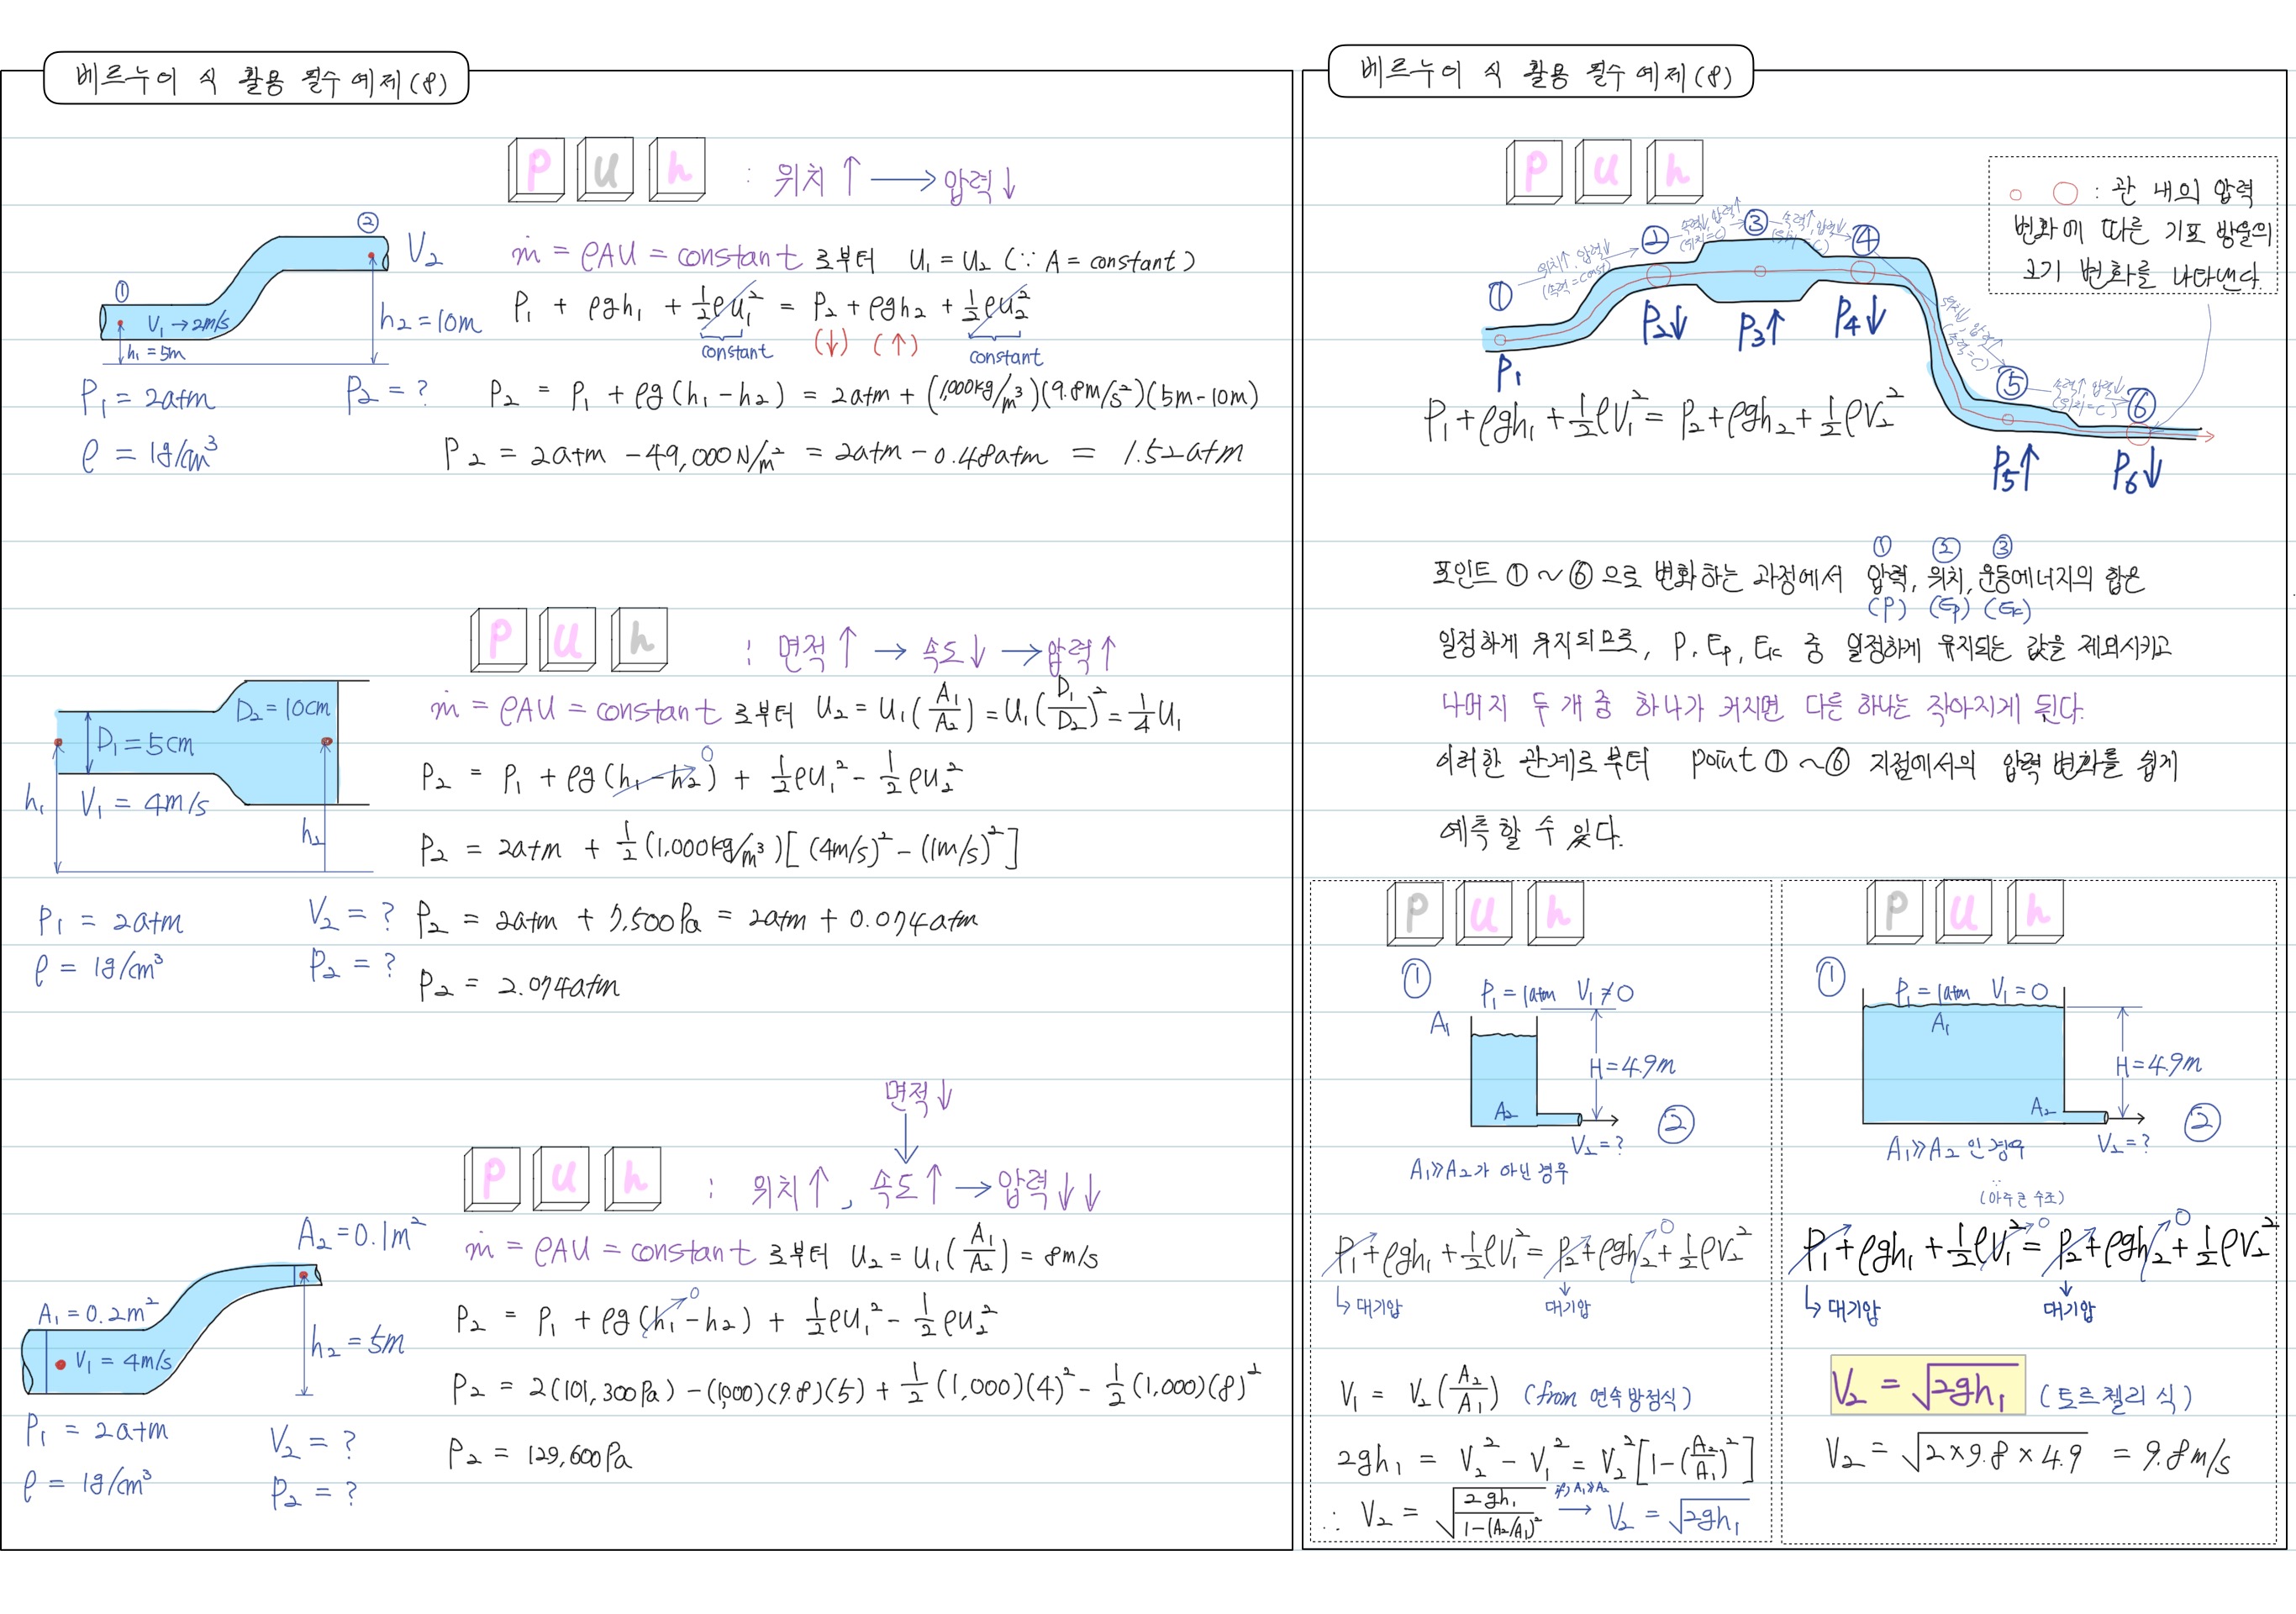 베르누이 식 활용 필수예제(8)
P U h : 위치↑ → 압력↓
② V₂
ṁ = ρAU = constant 로부터 U₁ = U₂ (∵ A = constant)
①
V₁→2m/s
h₁=5m
h₂=10m
P₁ + ρgh₁ + ½ρu₁² = P₂ + ρgh₂ + ½ρu₂²
constant (↓) (↑) constant
P₁ = 2atm P₂ = ?
ρ = 1g/cm³
P₂ = P₁ + ρg(h₁-h₂) = 2atm + (1,000kg/m³)(9.8m/s²)(5m-10m)
P₂ = 2atm - 49,000N/m² = 2atm - 0.48atm = 1.52atm
P U h : 면적↑ → 속도↓ → 압력↑
D₁ = 5cm D₂ = 10cm
h₁ V₁ = 4m/s h₂
ṁ = ρAU = constant 로부터 U₂ = U₁(A₁/A₂) = U₁(D₁/D₂)² = ¼U₁
P₂ = P₁ + ρg(h₁-h₂) 0 + ½ρu₁² - ½ρu₂²
P₂ = 2atm + ½(1,000kg/m³)[(4m/s)² - (1m/s)²]
P₁ = 2atm V₂ = ?
ρ = 1g/cm³ P₂ = ?
P₂ = 2atm + 7,500Pa = 2atm + 0.074atm
P₂ = 2.074atm
면적↓
P U h : 위치↑, 속도↑ → 압력↓↓
A₂ = 0.1m²
A₁ = 0.2m²
V₁ = 4m/s h₂ = 5m
ṁ = ρAU = constant 로부터 U₂ = U₁(A₁/A₂) = 8m/s
P₂ = P₁ + ρg(h₁ 0 - h₂) + ½ρu₁² - ½ρu₂²
P₂ = 2(101,300Pa) - (1,000)(9.8)(5) + ½(1,000)(4)² - ½(1,000)(8)²
P₁ = 2atm V₂ = ?
ρ = 1g/cm³ P₂ = ?
P₂ = 129,600Pa
베르누이 식 활용 필수예제(8)
P U h
○ ○ : 관 내의 압력
변화에 따른 기포 방울의
크기 변화를 나타낸다.
① 위치↑, 압력↓ (속력=const)
② 속력↓, 압력↑ (위치=C)
③ 속력↑, 압력↓ (위치=C)
④ 위치↓, 압력↑ (속력=C)
⑤ 속력↑, 압력↓ (위치=C)
⑥
P₁ P₂↓ P₃↑ P₄↓ P₅↑ P₆↓
P₁+ρgh₁+½ρV₁² = P₂+ρgh₂+½ρV₂²
① ② ③
포인트 ①~⑥으로 변화하는 과정에서 압력, 위치, 운동에너지의 합은
(P) (Ep) (Ek)
일정하게 유지되므로, P, Ep, Ek 중 일정하게 유지되는 값을 제외시키고
나머지 두 개 중 하나가 커지면 다른 하나는 작아지게 된다.
이러한 관계로부터 point ①~⑥ 지점에서의 압력 변화를 쉽게
예측할 수 있다.
P U h
①
P₁=1atm V₁≠0
A₁
H=4.9m
A₂
V₂=? ②
A₁≫A₂가 아닌 경우
P₁+ρgh₁+½ρV₁² = P₂+ρgh₂ 0 +½ρV₂²
↳ 대기압 ↓ 대기압
V₁ = V₂(A₂/A₁) (from 연속방정식)
2gh₁ = V₂² - V₁² = V₂²[1-(A₂/A₁)²]
∴ V₂ = √(2gh₁/(1-(A₂/A₁)²)) if) A₁≫A₂ → V₂ = √2gh₁
P U h
①
P₁=1atm V₁=0
A₁
H=4.9m
A₂
V₂=? ②
A₁≫A₂ 인 경우
∵
(아주 큰 수조)
P₁+ρgh₁+½ρV₁² 0 = P₂+ρgh₂ 0 +½ρV₂²
↳ 대기압 ↓ 대기압
V₂ = √2gh₁ (토르첼리 식)
V₂ = √2×9.8×4.9 = 9.8m/s